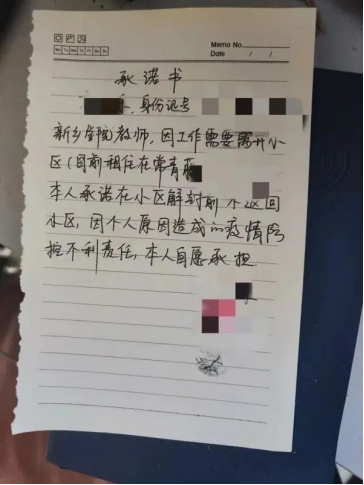 Memo No.
Mo Tu We Th Fr Sa Su
Date / /
承诺书
,身份证号
新乡学院教师,因工作需要离开小
区(目前租住在常青藤
本人承诺在小区解封前不返回
小区,因个人原因造成的疫情防
控不利责任,本人自愿承担.